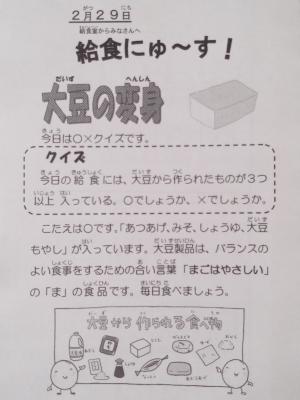 ２月２９日
給食室からみなさんへ
給食にゅ～す！
大豆の変身
今日は○×クイズです。
クイズ
今日の給食には、大豆から作られたものが３つ
以上入っている。○でしょうか、×でしょうか。
こたえは○です。「あつあげ、みそ、しょうゆ、大豆
もやし」が入っています。大豆製品は、バランスの
よい食事をするための合い言葉「まごはやさしい」
の「ま」の食品です。毎日食べましょう。
大豆から作られる食べ物